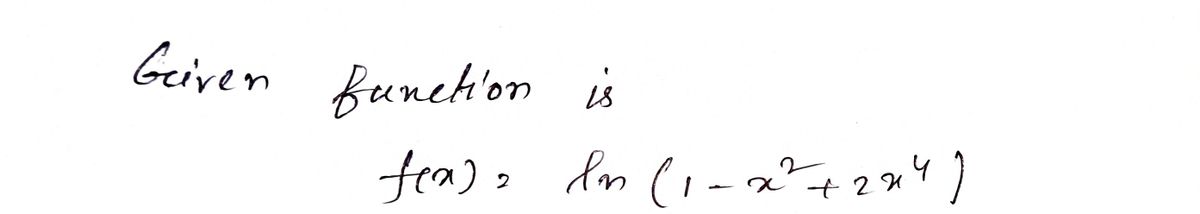 Given function is
f(x) = ln (1 - x² + 2x⁴)